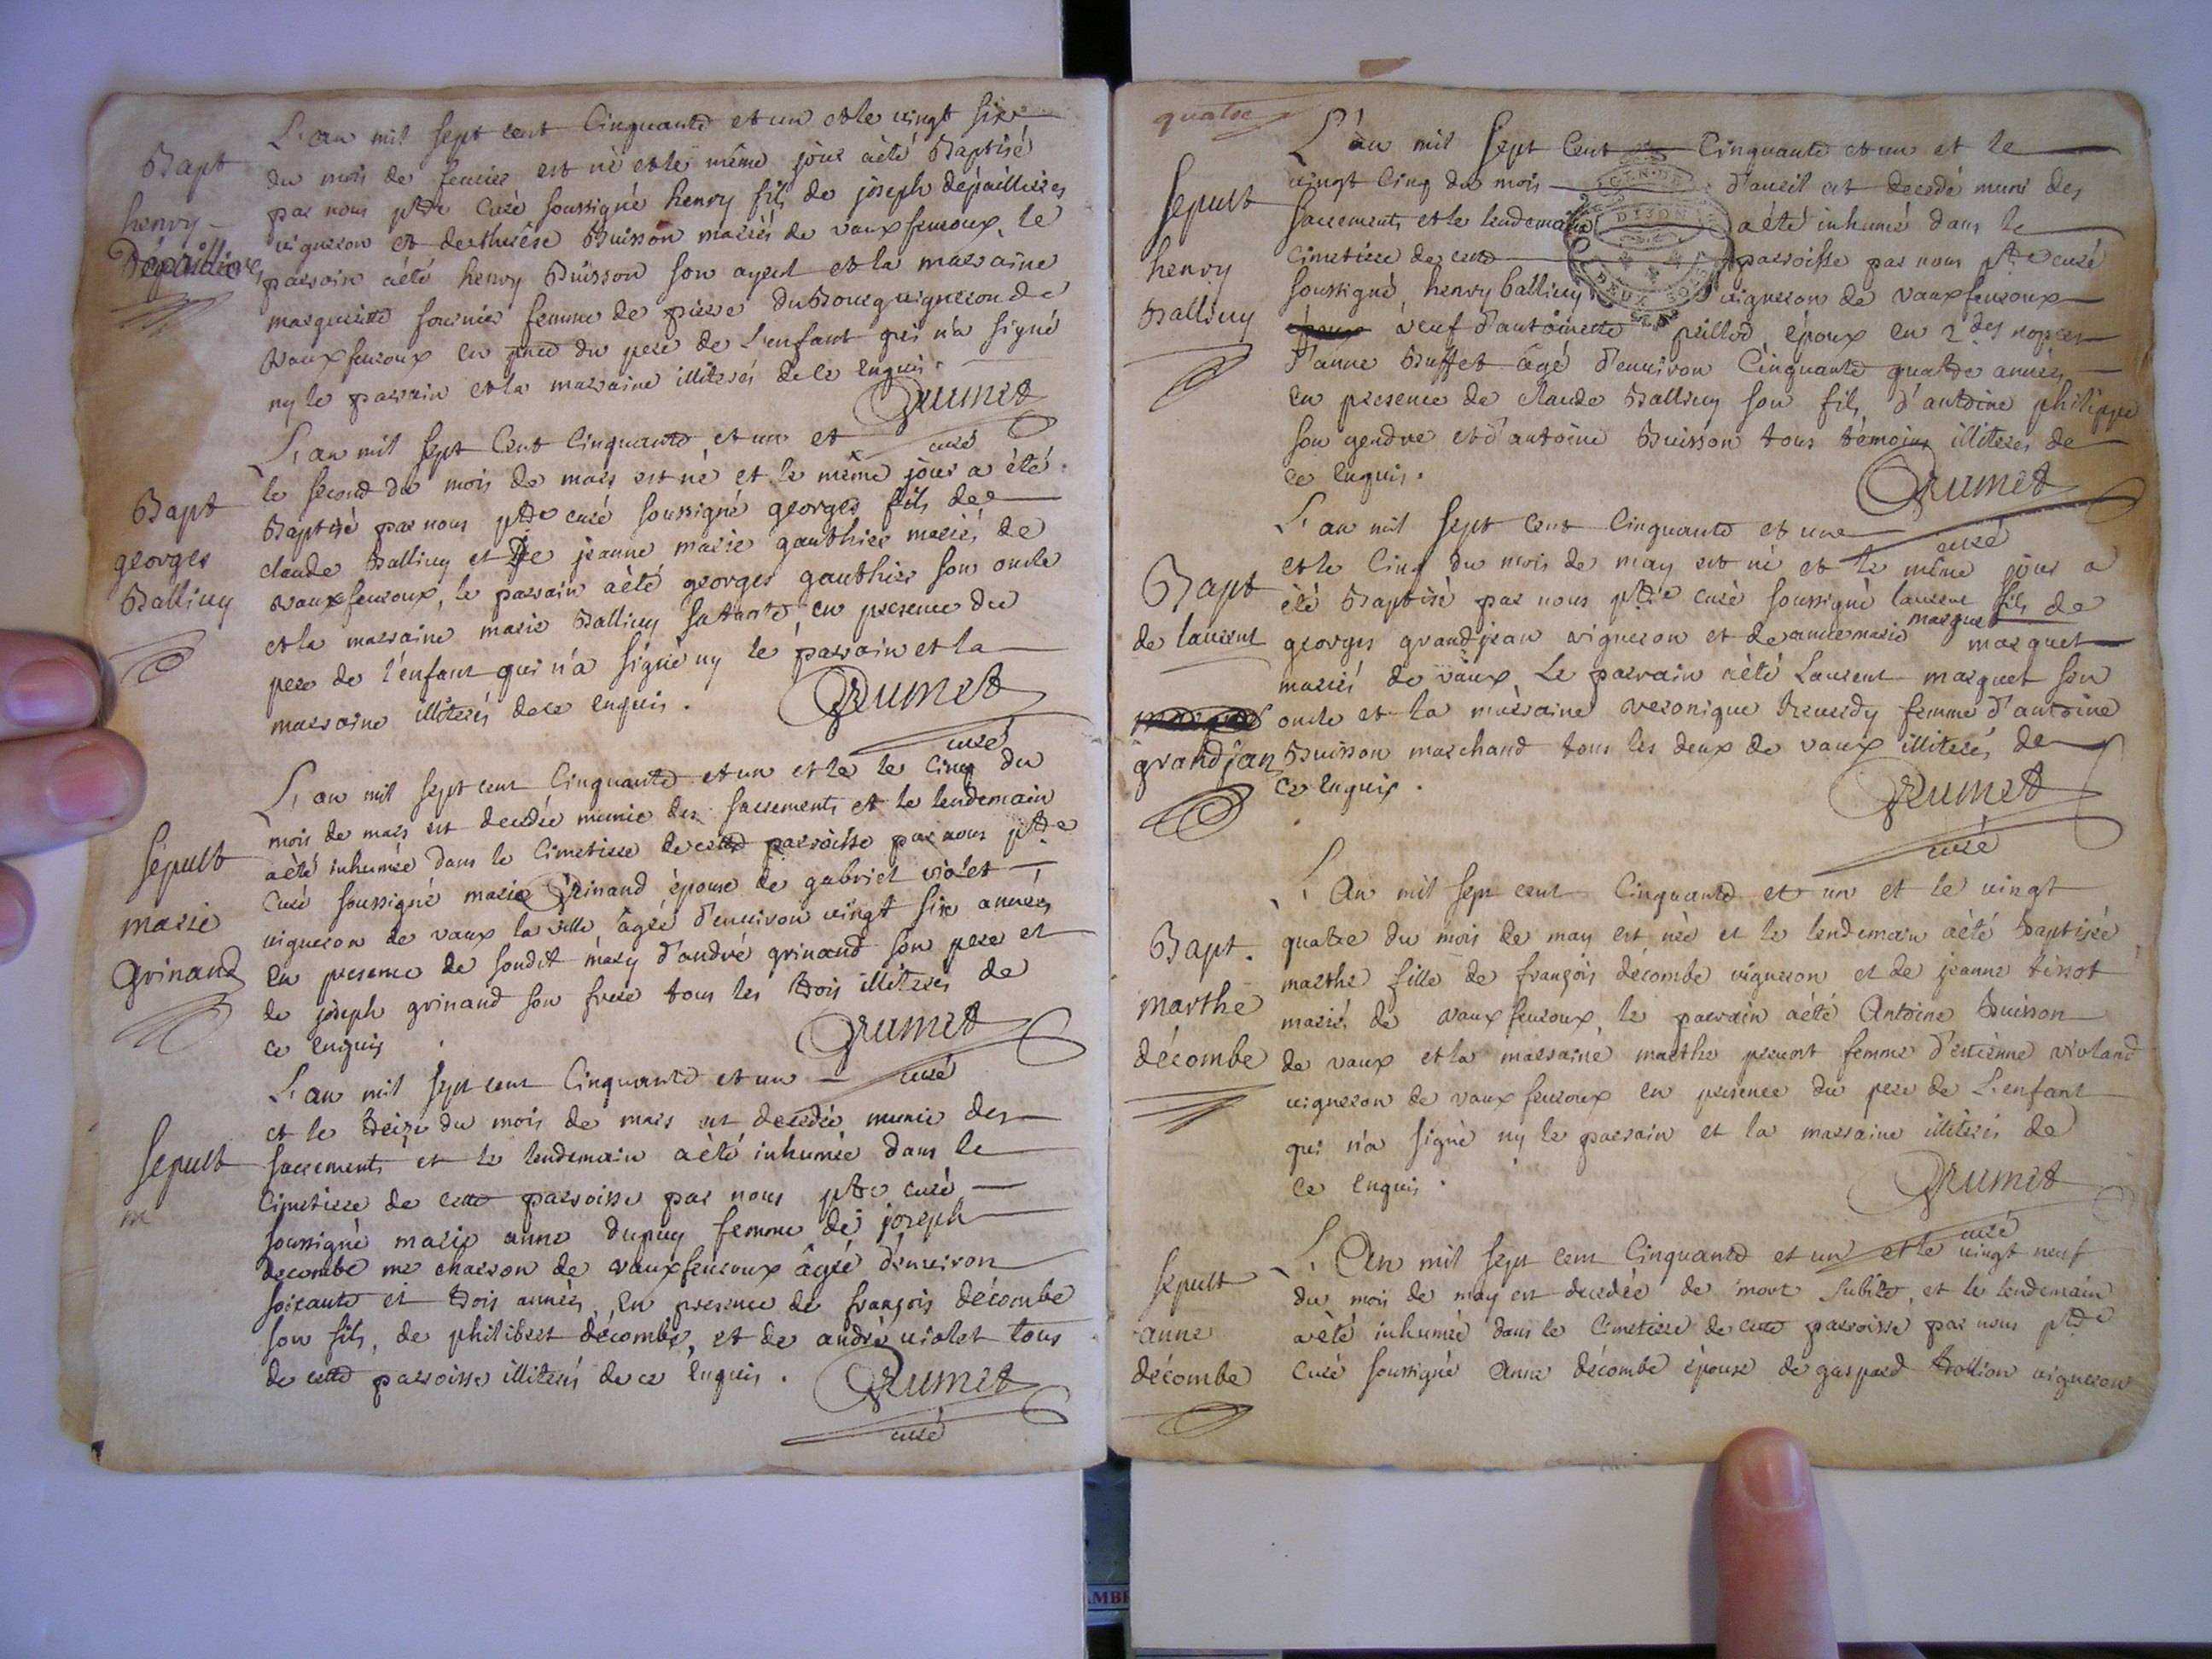 L'an mil sept cent Cinquante et un et le vingt six
Bapt
du mois de feuvier est né et le même jour a été Baptisé
par nous ptre curé soussigné henry fils de joseph dépaillieres
henry
vigneron et de therèse Buisson mariés de vaux feuroux, le
Dépaillieres
parrain a été henry Buisson son ayeul et la marraine
marguerite fournier femme de pierre du Bourg vigneron de
vaux feuroux en pnce du pere de L'enfant qui n'a signé
ny le parrain et la marraine illiterés de ce enquis.
Grumet
curé
L'an mil sept Cent Cinquante et un et
le second du mois de mars est né et le même jour a été
Bapt
Baptisé par nous ptre curé soussigné georges fils de
georges
claude Balliuy et De jeanne marie gauthier mariés de
Balliuy
vaux feuroux, le parrain a été georges gauthier son oncle
et la marraine marie Balliuy sa tante, en presence du
pere de l'enfant qui n'a signé ny le parrain et la
marraine illiterés de ce enquis.
Grumet
curé
L'an mil sept cent Cinquante et un et le le Cinq du
mois de mars est decedée munie des sacrements et le lendemain
sepult
a été inhumée dans le Cimetiere de cette parroisse par nous ptre
marie
Curé soussigné marie Grinand épouse de gabriel violet
vigneron de vaux la ville âgée d'environ vingt six années
grinand
en presence de soudit mary d'andré grinand son pere et
de joseph grinand son frere tous les trois illiterés de
ce enquis
Grumet
curé
L'an mil sept cent Cinquante et un
et le treize du mois de mars est decedée munie des
sepult
sacrements et le lendemain a été inhumée dans le
m
Cimetiere de cette parroisse par nous ptre curé
soussigné marie anne dupuy femme de joseph
decombe me charron de vaux feuroux âgée d'environ
soixante et trois années, En presence de françois décombe
son fils, de philibert décombe, et de andré violet tous
de cette parroisse illiterés de ce enquis.
Grumet
curé
quatre
L'an mil sept Cent Cinquante et un et le
sepult
vingt Cinq du mois d'avril est decedé muni des
sacrements et le lendemain a été inhumé dans le
henry
Cimetiere de cette parroisse par nous ptre curé
Balliuy
soussigné, henry balliuy vigneron de vaux feuroux
époux veuf d'antoinette pillod époux en 2.des nopces
d'anne Buffet âgé d'environ Cinquante quatre années
En presence de claude Balliuy son fils, d'antoine philippe
son gendre et d'antoine Buisson tous témoins illiterés de
ce enquis.
Grumet
curé
L'an mil sept cent Cinquante et un
et le Cinq du mois de may est né et le même jour a
Bapt
été Baptisé par nous ptre curé soussigné laurent fils de
de laurent
georges grandjean vigneron et de anne marie marguet marguet
mariés de vaux. Le parrain a été Laurent marguet son
oncle et la marraine veronique femme d'antoine
grandjan
Buisson marchand tous les deux de vaux illiterés de
ce enquis.
Grumet
curé
L'An mil sept cent Cinquante et un et le vingt
Bapt.
quatre du mois de may est née et le lendemain a été baptisée
marthe
marthe fille de françois décombe vigneron et de jeanne tissot
mariés de vaux feuroux, le parrain a été Antoine Buisson
décombe
de vaux et la marraine marthe femme d'etienne violand
vigneron de vaux feuroux en presence du pere de L'enfant
qui n'a signé ny le parrain et la marraine illiterés de
ce enquis.
Grumet
curé
L'An mil sept cent Cinquante et un et le vingt neuf
sepult
du mois de may est decedée de mort subite, et le lendemain
anne
a été inhumée dans le Cimetiere de cette parroisse par nous ptre
décombe
Curé soussigné Anne décombe épouse de gaspard trollion vigneron